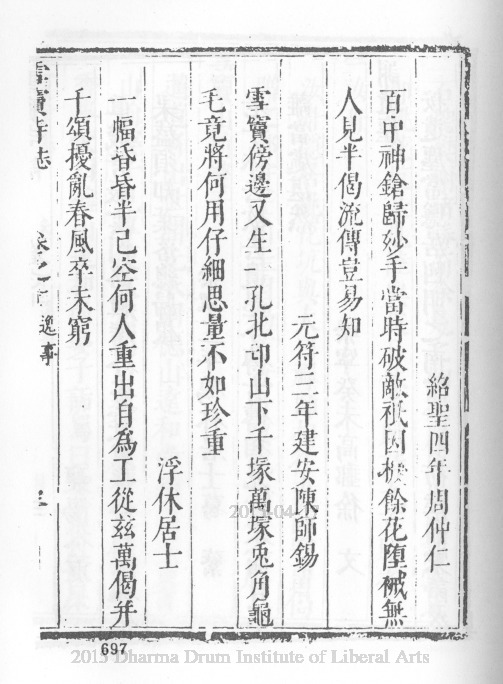 紹聖四年周仲仁
百中神鎗歸妙手當時破敵祇因機餘花墮械無
人見半偈流傳豈易知
元符三年建安陳師錫
雪竇傍邊又生一孔北邙山下千塚萬塚兎角龜
毛竟將何用仔細思量不如珍重
浮休居士
一幅昏昏半已空何人重出自為工從兹萬偈并
千頌擾亂春風卒未窮
雪竇寺志 卷之 逸事
697
2013 Dharma Drum Institute of Liberal Arts